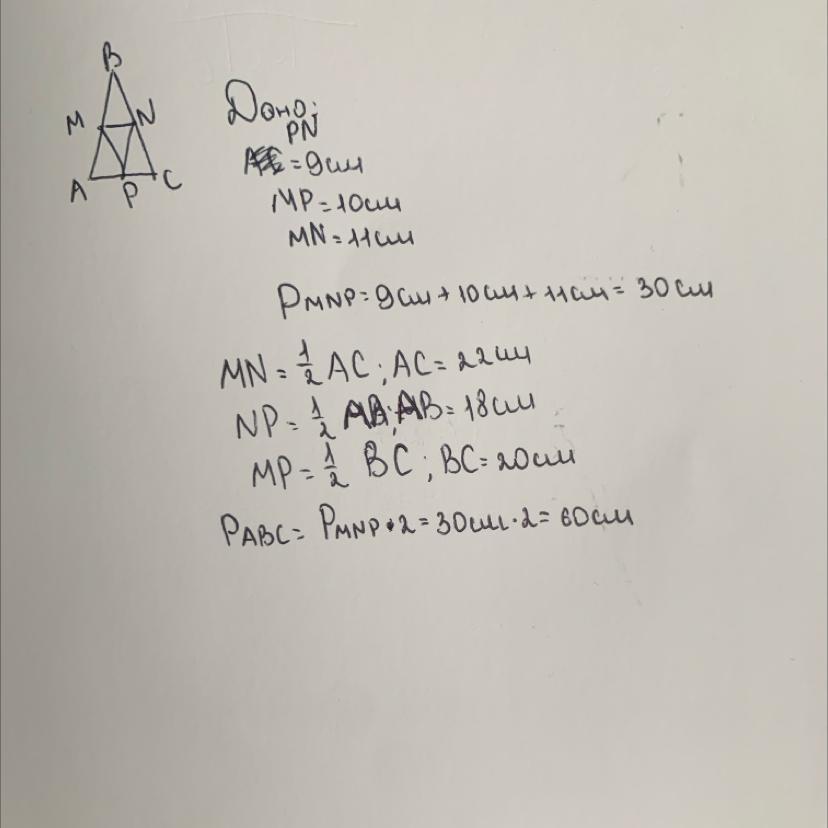 B
M N
A P C
Доно:
PN
=9см
MP=10см
MN=11см
PMNP=9см+10см+11см=30см
MN=1/2 AC; AC=22см
NP=1/2 AB; AB=18см
MP=1/2 BC; BC=20см
PABC= PMNP·2=30см·2=60см